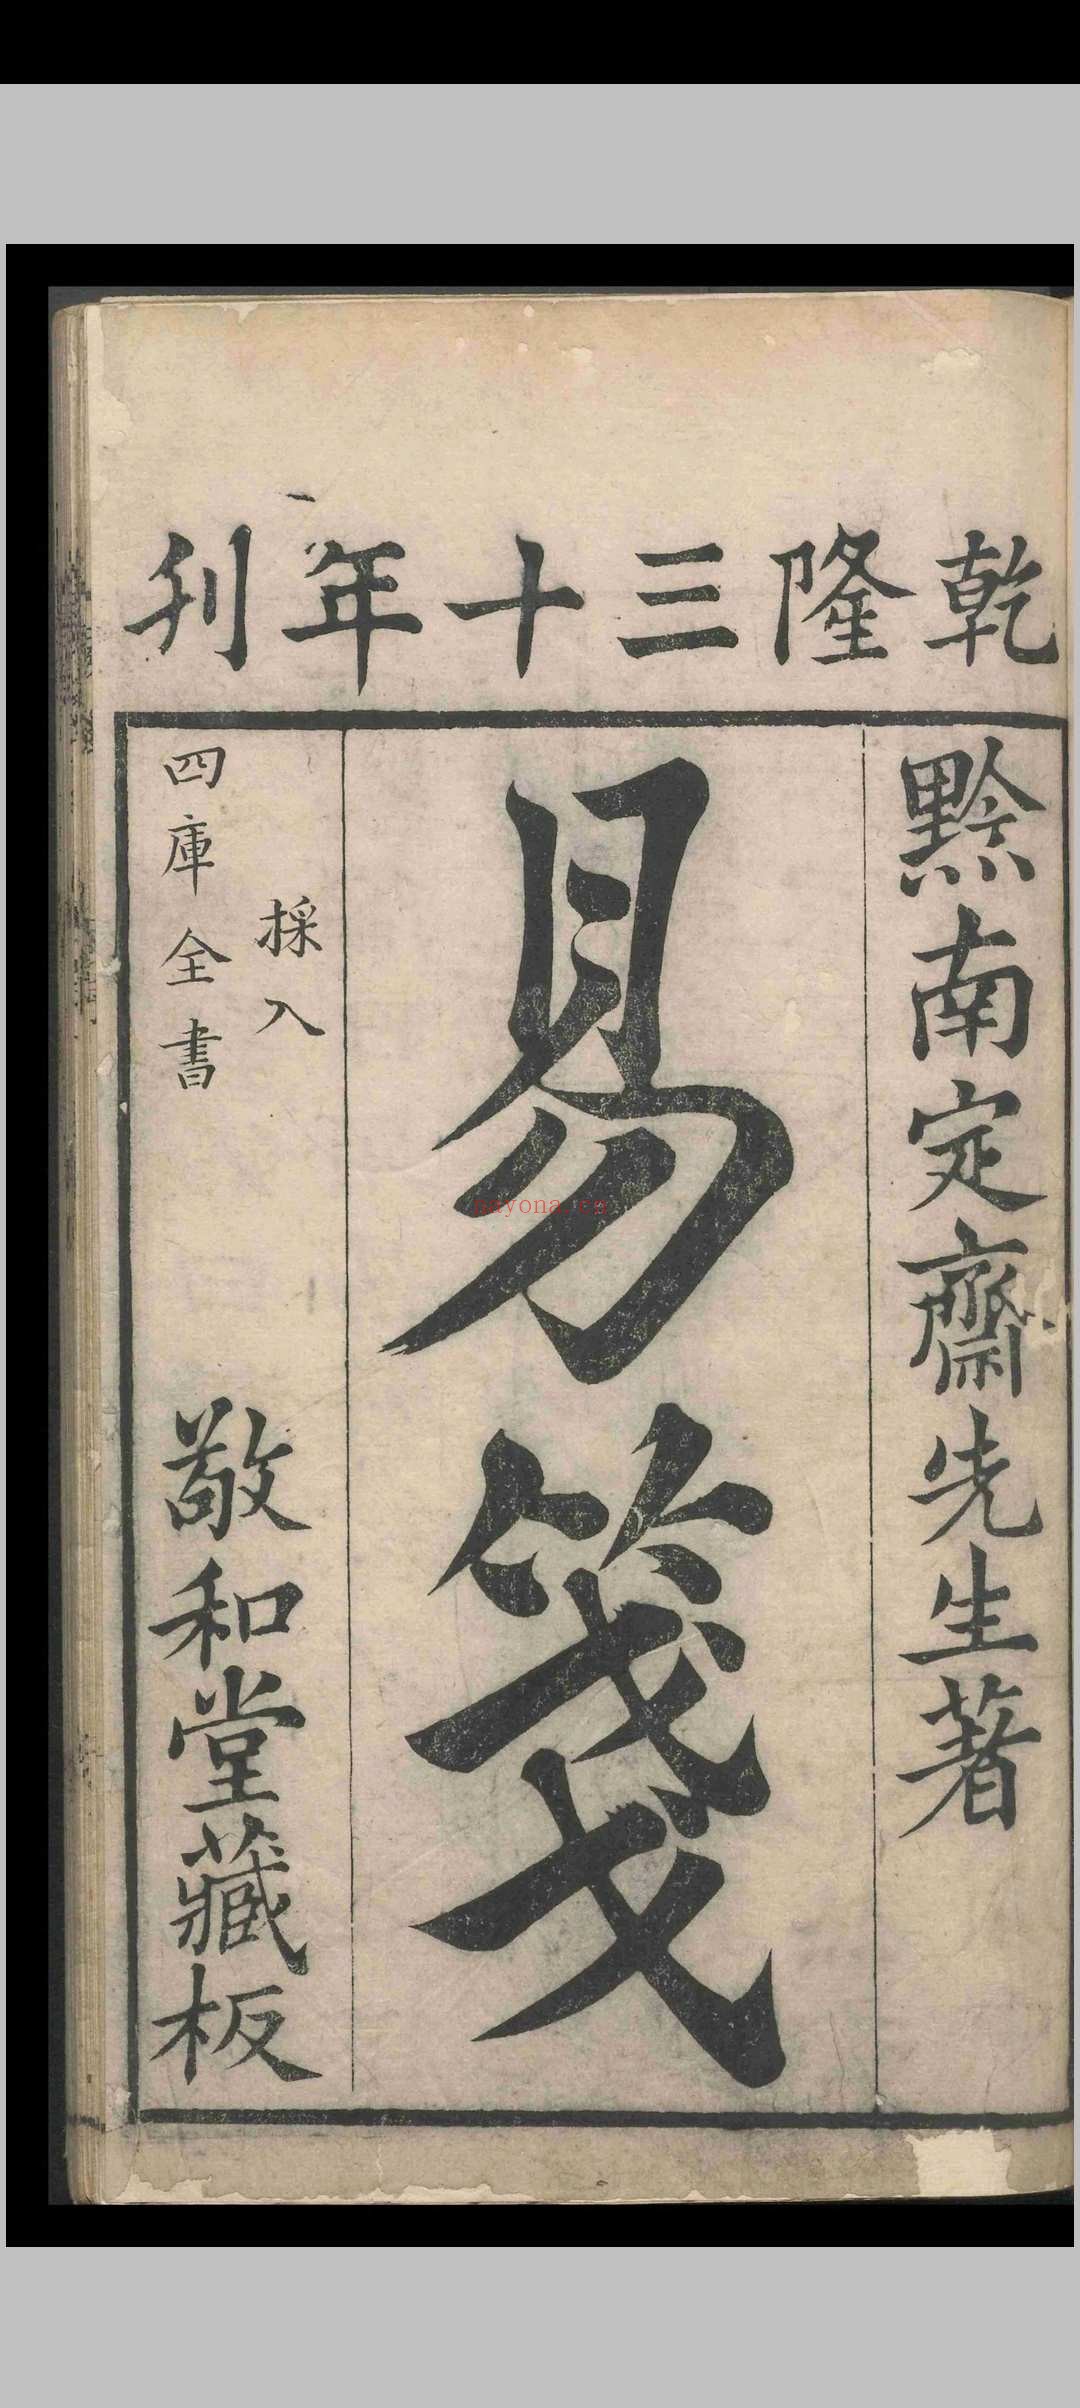 乾隆三十年刊
黔南定齋先生著
易箋
採入
四庫全書
敬和堂藏板
nayona.cn